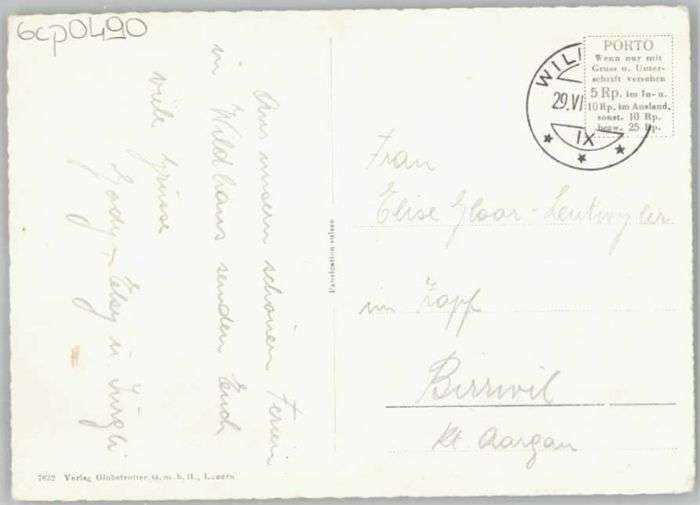 6cp0490
Aus unsern schönen Ferien
in Wildhaus senden Euch
viele Grüsse
Gody + Elsy u. Jürgli
Fabrication suisse
PORTO
Wenn nur mit
Gruss u. Unter-
schrift versehen
5 Rp. im In- u.
10 Rp. im Ausland,
sonst. 10 Rp.
bezw. 25 Rp.
WIL
29.VI
IX
Frau
Elise Gloor-Leutwyler
im Zopf
Birrwil
Kt Aargau
7622 Verlag Globetrotter G. m. b. H., Luzern